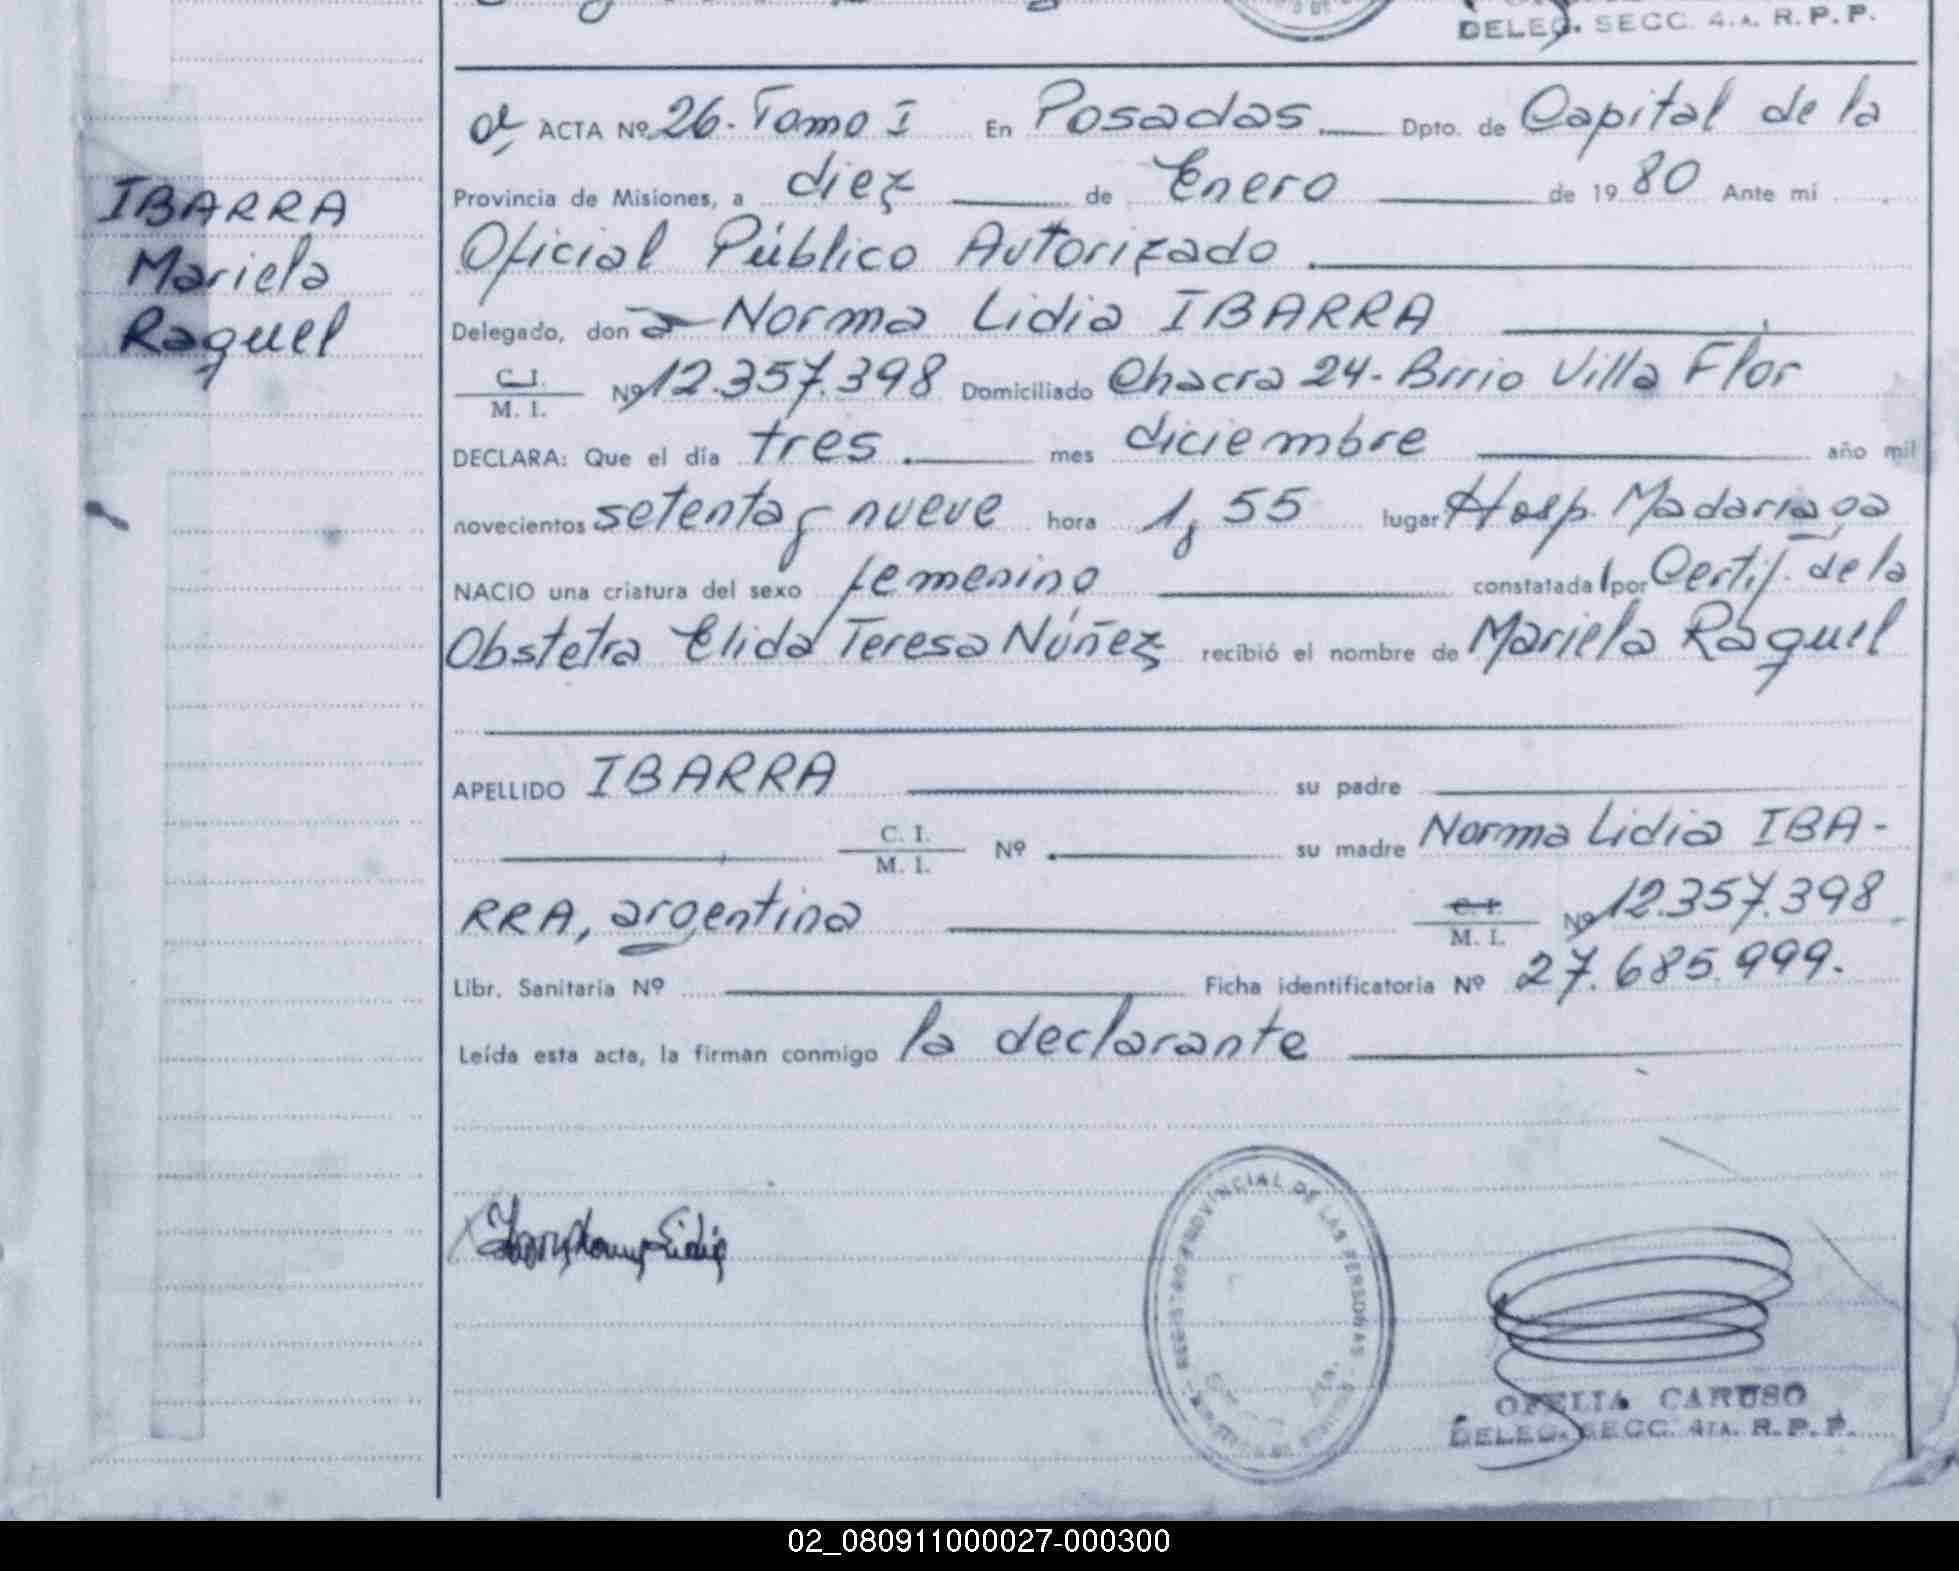 DELEG. SECC. 4.A. R. P. P.
ACTA Nº 26. Tomo I En Posadas Dpto. de Capital de la
Provincia de Misiones, a diez de Enero de 1980 Ante mí
IBARRA
Oficial Público Autorizado
Mariela
Delegado, don a Norma Lidia IBARRA
Raquel
C. I.
M. I. Nº 12.357.398 Domiciliado Chacra 24- Brrio Villa Flor
DECLARA: Que el día tres mes diciembre año mil
novecientos setenta y nueve hora 1,55 lugar Hosp. Madariaga
NACIO una criatura del sexo femenino constatada por Certif. de la
Obstetra Elida Teresa Núñez recibió el nombre de Mariela Raquel
APELLIDO IBARRA su padre
C. I.
M. I. Nº su madre Norma Lidia IBA-
RRA, argentina C. I.
M. I. Nº 12.357.398
Libr. Sanitaria Nº Ficha identificatoria Nº 27.685.999.
Leída esta acta, la firman conmigo la declarante
REGISTRO PROVINCIAL DE LAS PERSONAS
Lidia
OFELIA CARUSO
DELEG. SECC. 4TA. R. P. P.
02_080911000027-000300